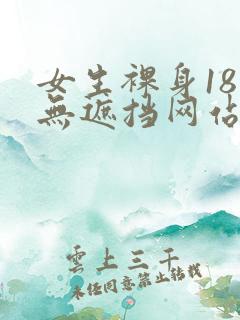 女生裸身18
無遮挡网佔
雲上三千
未经同意禁止转载